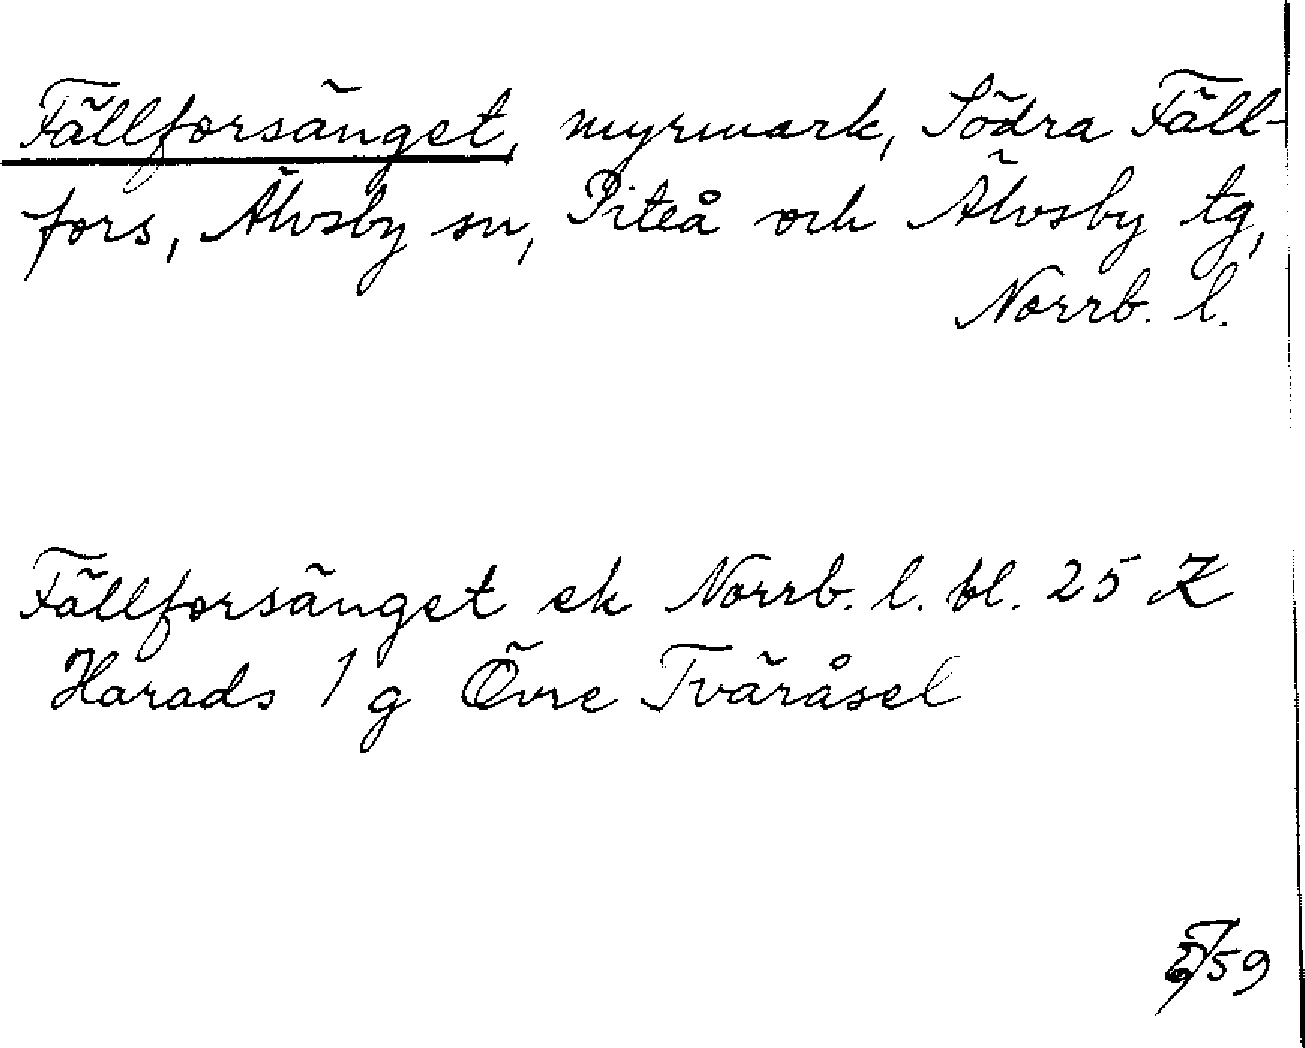 Fällforsänget, myrmark, Södra Fäll-
fors, Älvsby sn, Piteå och Älvsby tg,
Norrb. l.
Fällforsänget ek Norrb. l. bl. 25 K
Harads 1 g Övre Tväråsel
/59